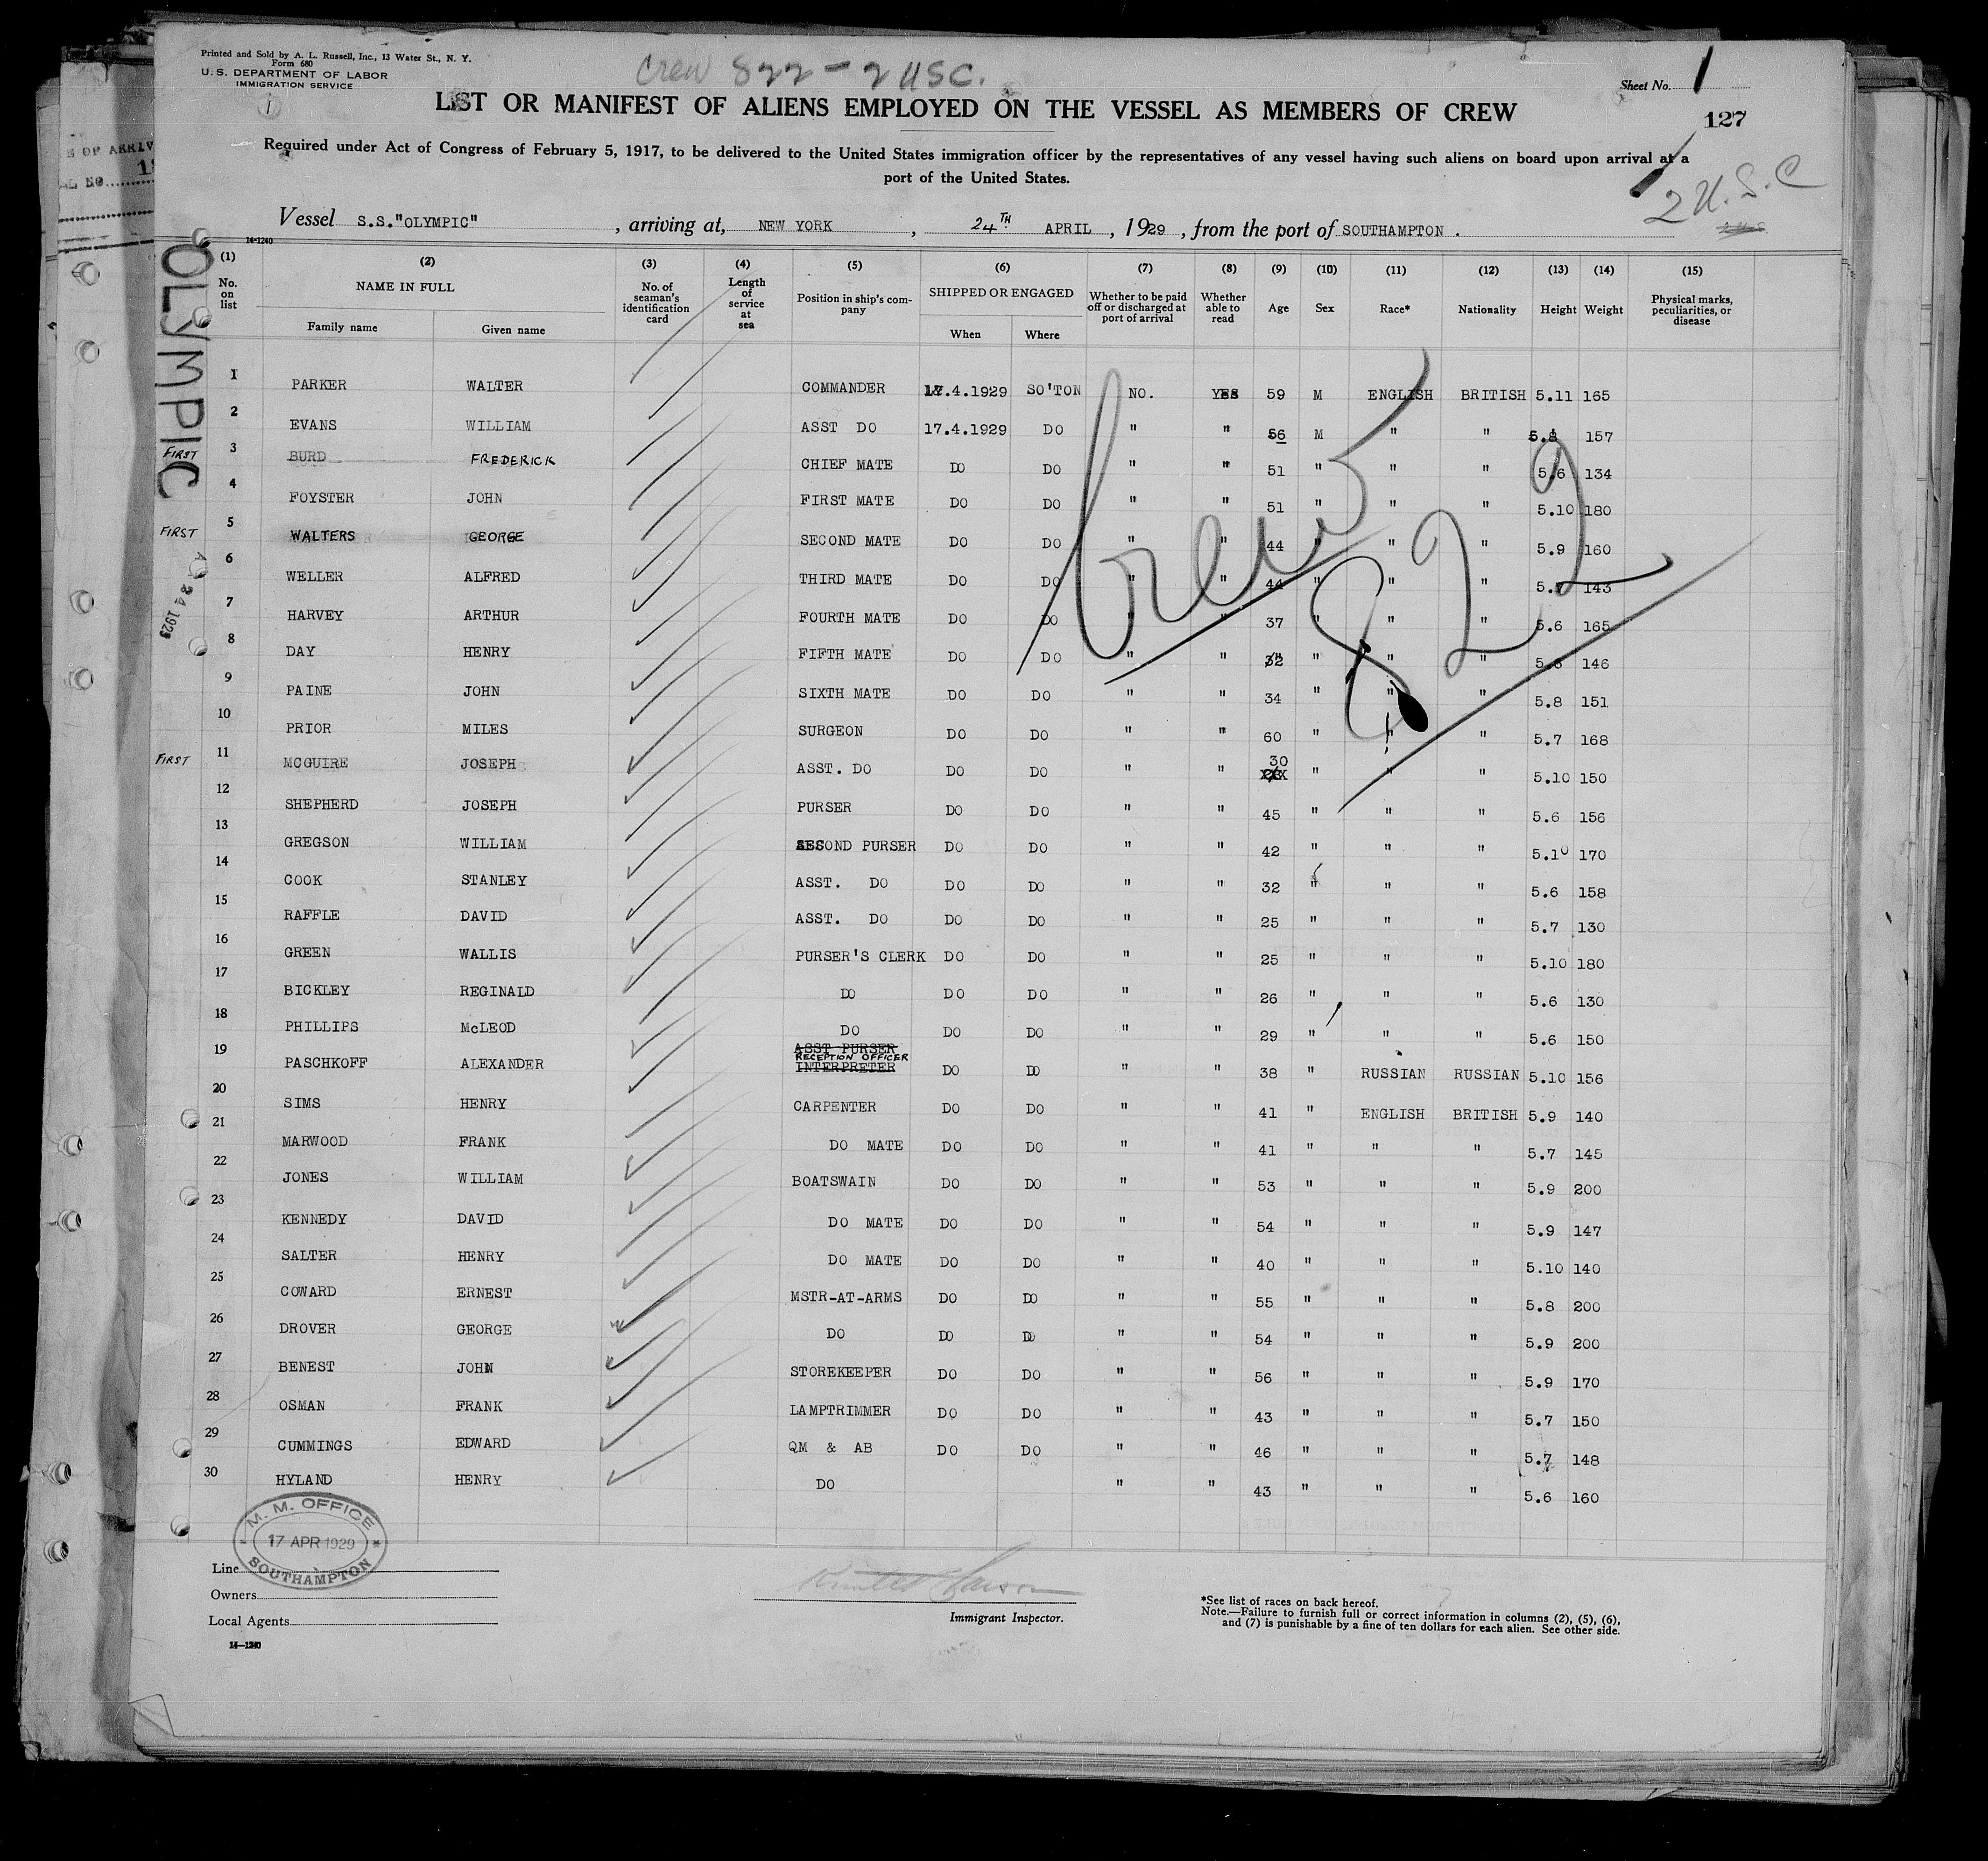 Printed and Sold by A. L. Russell, Inc., 13 Water St., N. Y.
Form 680
U. S. DEPARTMENT OF LABOR
IMMIGRATION SERVICE
Crew 822 - 2 USC.
Sheet No. 1
LIST OR MANIFEST OF ALIENS EMPLOYED ON THE VESSEL AS MEMBERS OF CREW
127
Required under Act of Congress of February 5, 1917, to be delivered to the United States immigration officer by the representatives of any vessel having such aliens on board upon arrival at a
port of the United States.
2 U.S.C
Vessel S.S."OLYMPIC" , arriving at, NEW YORK , 24TH APRIL , 1929 , from the port of SOUTHAMPTON .
14-1240
OLYMPIC
(1) (2) (3) (4) (5) (6) (7) (8) (9) (10) (11) (12) (13) (14) (15)
No. on list NAME IN FULL No. of seaman's identification card Length of service at sea Position in ship's company SHIPPED OR ENGAGED Whether to be paid off or discharged at port of arrival Whether able to read Age Sex Race* Nationality Height Weight Physical marks, peculiarities, or disease
Family name Given name When Where
1 PARKER WALTER COMMANDER 17.4.1929 SO'TON NO. YES 59 M ENGLISH BRITISH 5.11 165
2 EVANS WILLIAM ASST DO 17.4.1929 DO " " 56 M " " 5.8 157
FIRST 3 BURD FREDERICK CHIEF MATE DO DO " " 51 " " " 5.6 134
4 FOYSTER JOHN FIRST MATE DO DO " " 51 " " " 5.10 180
FIRST 5 WALTERS GEORGE SECOND MATE DO DO " " 44 " " " 5.9 160
6 WELLER ALFRED THIRD MATE DO DO " " 44 " " " 5.7 143
7 HARVEY ARTHUR FOURTH MATE DO DO " " 37 " " " 5.6 165
8 DAY HENRY FIFTH MATE DO DO " " 32 " " " 146
9 PAINE JOHN SIXTH MATE DO DO " " 34 " " " 5.8 151
10 PRIOR MILES SURGEON DO DO " " 60 " " " 5.7 168
FIRST 11 MCGUIRE JOSEPH ASST. DO DO DO " " 30 " " " 5.10 150
12 SHEPHERD JOSEPH PURSER DO DO " " 45 " " " 5.6 156
13 GREGSON WILLIAM SECOND PURSER DO DO " " 42 " " " 5.10 170
14 COOK STANLEY ASST. DO DO DO " " 32 " " " 5.6 158
15 RAFFLE DAVID ASST. DO DO DO " " 25 " " " 5.7 130
16 GREEN WALLIS PURSER'S CLERK DO DO " " 25 " " " 5.10 180
17 BICKLEY REGINALD DO DO DO " " 26 " " " 5.6 130
18 PHILLIPS McLEOD DO DO DO " " 29 " " " 5.6 150
ASST PURSER
RECEPTION OFFICER
19 PASCHKOFF ALEXANDER INTERPRETER DO DO " " 38 " RUSSIAN RUSSIAN 5.10 156
20 SIMS HENRY CARPENTER DO DO " " 41 " ENGLISH BRITISH 5.9 140
21 MARWOOD FRANK DO MATE DO DO " " 41 " " " 5.7 145
22 JONES WILLIAM BOATSWAIN DO DO " " 53 " " " 5.9 200
23 KENNEDY DAVID DO MATE DO DO " " 54 " " " 5.9 147
24 SALTER HENRY DO MATE DO DO " " 40 " " " 5.10 140
25 COWARD ERNEST MSTR-AT-ARMS DO DO " " 55 " " " 5.8 200
26 DROVER GEORGE DO DO DO " " 54 " " " 5.9 200
27 BENEST JOHN STOREKEEPER DO DO " " 56 " " " 5.9 170
28 OSMAN FRANK LAMPTRIMMER DO DO " " 43 " " " 5.7 150
29 CUMMINGS EDWARD QM & AB DO DO " " 46 " " " 5.7 148
30 HYLAND HENRY DO " " 43 " " " 5.6 160
Crew 822
M. M. OFFICE
17 APR 1929
SOUTHAMPTON
Line
Owners
Local Agents
14-1240
Immigrant Inspector.
*See list of races on back hereof.
Note.—Failure to furnish full or correct information in columns (2), (5), (6),
and (7) is punishable by a fine of ten dollars for each alien. See other side.